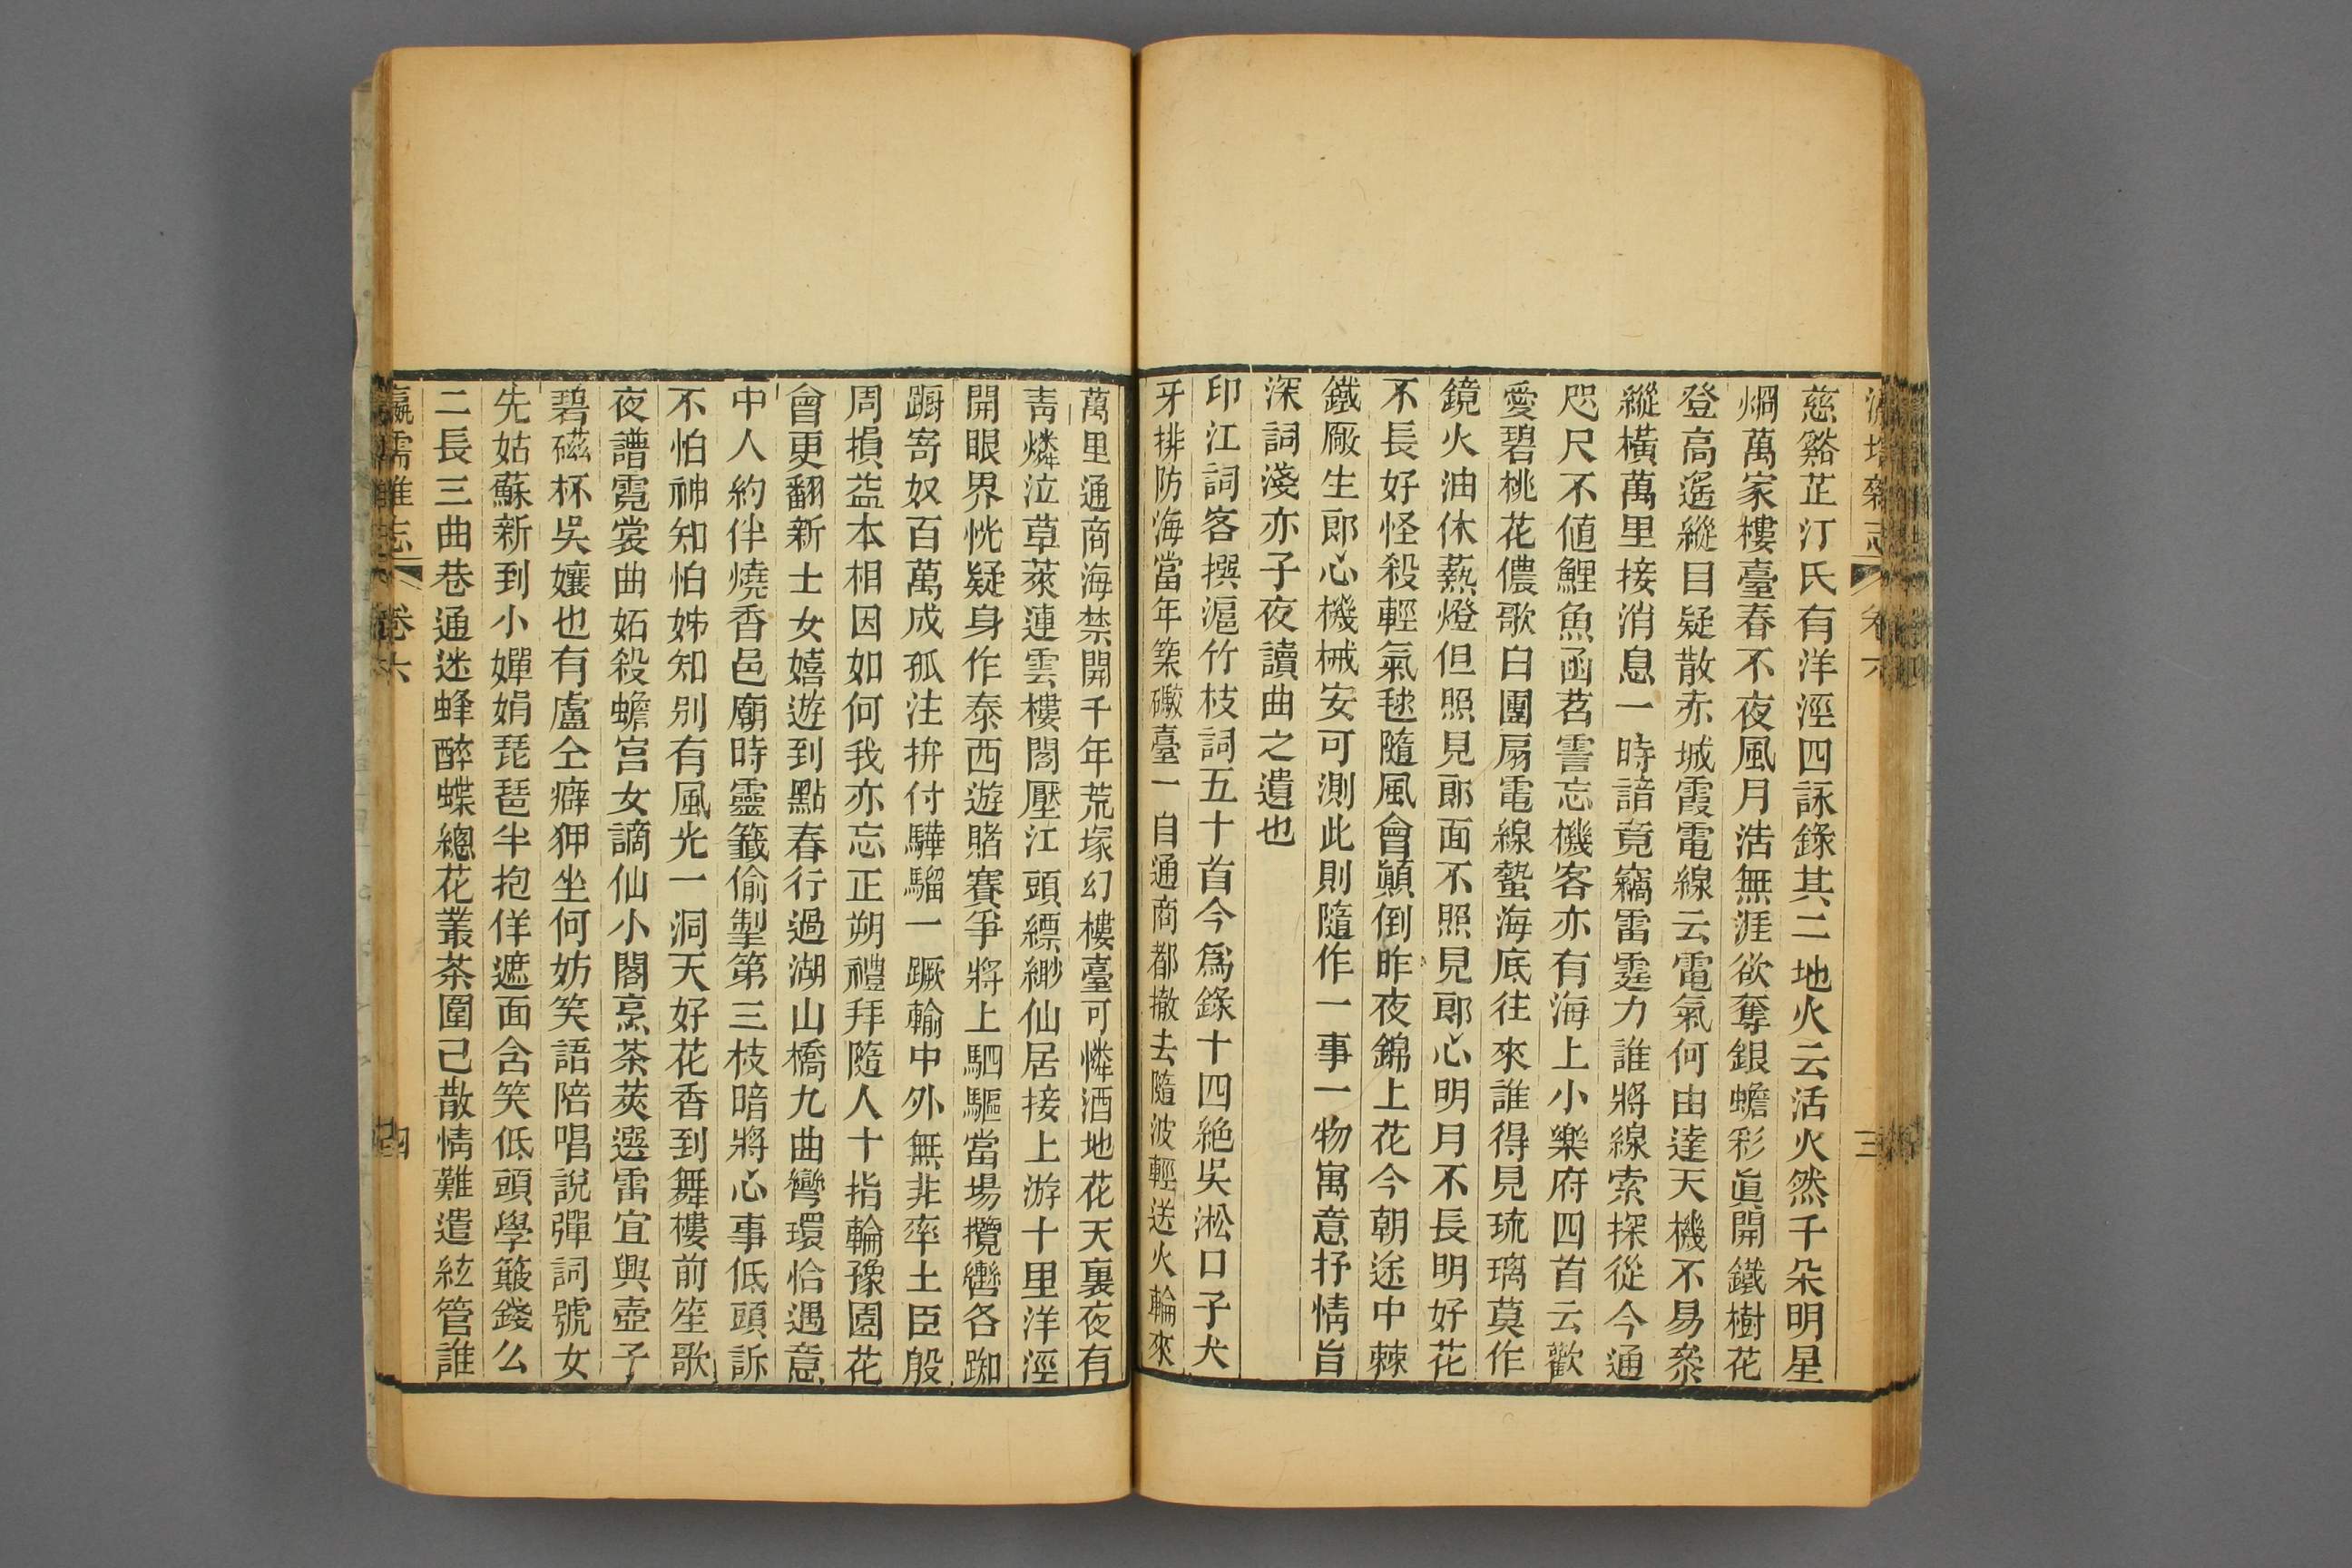 慈谿芷汀氏有洋涇四詠錄其二地火云活火然千朵明星
爛萬家樓臺春不夜風月浩無涯欲奪銀蟾彩眞開鐵樹花
登高遙縱目疑散赤城霞電線云電氣何由達天機不易叅
縱橫萬里接消息一時諳竟竊雷霆力誰將線索探從今通
咫尺不値鯉魚函茗霅忘機客亦有海上小樂府四首云歡
愛碧桃花儂歌白團扇電線蟄海底往來誰得見琉璃莫作
鏡火油休爇燈但照見郞面不照見郞心明月不長明好花
不長好怪殺輕氣毬隨風會顚倒昨夜錦上花今朝途中棘
鐵厰生郞心機械安可測此則隨作一事一物寓意抒情旨
深詞淺亦子夜讀曲之遺也
印江詞客撰滬竹枝詞五十首今爲錄十四絶吳淞口子犬
牙排防海當年築礮臺一自通商都撤去隨波輕送火輪來
萬里通商海禁開千年荒塚幻樓臺可憐酒地花天裏夜有
靑燐泣草萊連雲樓閣壓江頭縹緲仙居接上游十里洋涇
開眼界恍疑身作泰西遊賭賽爭將上駟驅當場攬轡各踟
蹰寄奴百萬成孤注拚付驊騮一蹶輸中外無非率土臣般
周損益本相因如何我亦忘正朔禮拜隨人十指輪豫園花
會更翻新士女嬉遊到點春行過湖山橋九曲彎環恰遇意
中人約伴燒香邑廟時靈籤偷掣第三枝暗將心事低頭訴
不怕神知怕姊知別有風光一洞天好花香到舞樓前笙歌
夜譜霓裳曲妬殺蟾宮女謫仙小閣烹茶莢選雷宜興壺子
碧磁杯吳孃也有盧仝癖狎坐何妨笑語陪唱說彈詞號女
先姑蘇新到小嬋娟琵琶半抱佯遮面含笑低頭學簸錢么
二長三曲巷通迷蜂醉蝶總花叢茶圍已散情難遣絃管誰
卷六
四